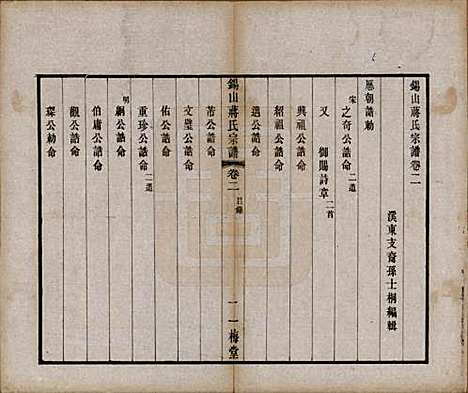 錫山蔣氏宗譜卷二
溪東支裔孫士桐編輯
歷朝誥勅
宋
之奇公誥命二道
又 御賜詩章二首
興祖公誥命
紹祖公誥命
遇公誥命
錫山蔣氏宗譜 卷二 目錄 一 一梅堂
芾公誥命
文璧公誥命
佑公誥命
重珍公誥命二道
明
伯庸公誥命
觀公誥命
琛公勅命